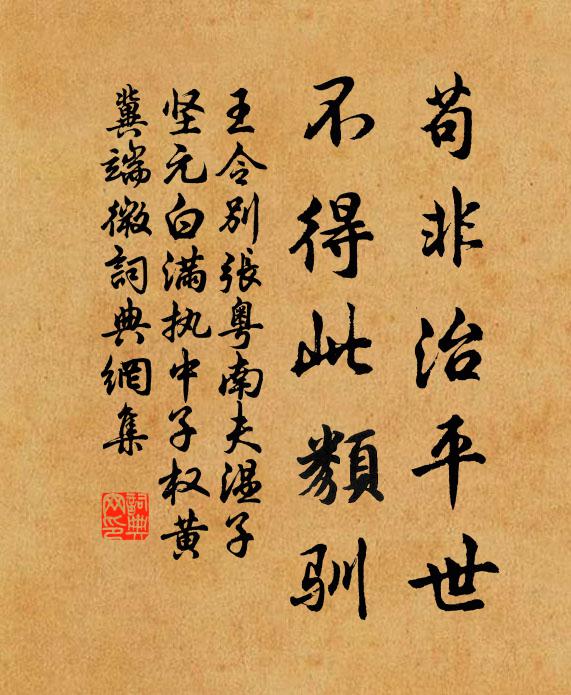 苟非治平世
不得此類馴
王令别張粤南夫温子
坚元白满执中子权黄
冀端微詞典網集
詞典网印